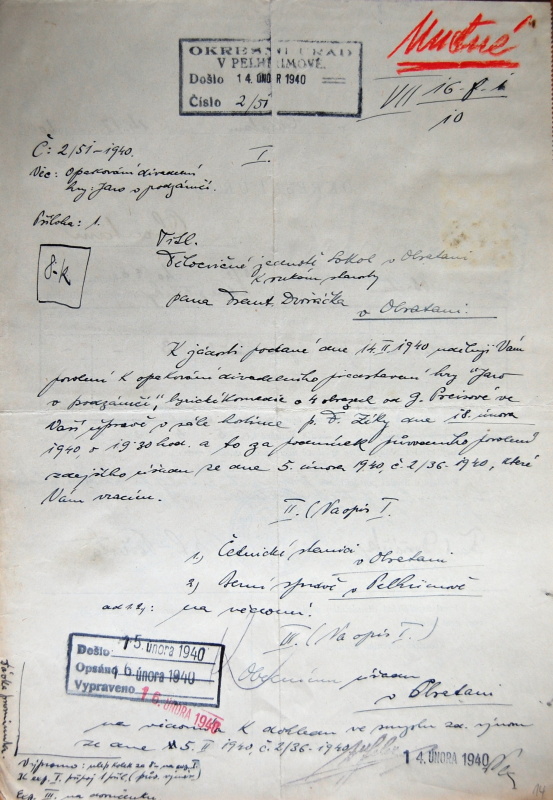 Nutné
OKRESNÍ ÚŘAD
V PELHŘIMOVĚ.
Došlo 14. ÚNOR 1940
Číslo 2/51
VII 16-
10
Č: 2/51-1940. I.
Věc: Opakování divadelní
hry: Jaro v podzámčí.
Příloha: 1.
8-k
Titl.
Tělocvičné jednotě Sokol v Obratani
k rukám starosty
pana Frant. Dvořáčka
v Obratani.
K žádosti podané dne 14. II 1940 uděluji Vám
povolení k opakování divadelního představení hry "Jaro
v podzámčí", lyrické komedie o 4 obrazech od G. Preisové ve
Vaší úpravě v sále hostince p. F. dne 18. února
1940, v 19.30 hod. a to za podmínek původního povolení
zdejšího úřadu ze dne 5. února 1940, č. 2/36-1940, které
Vám vracím.
II. (Na opis I.
1) Četnické stanici v Obratani
2) Berní správě v Pelhřimově
ad 1 2): na vědomí.
III. (Na opis I.)
Obecnímu úřadu
v Obratani
na vědomí k dohledu ve smyslu zd. výnosu
ze dne 5. II 1940, č. 2/36-1940.
14. ÚNORA 1940
Došlo: 15. února 1940
Opsáno 16 února 1940
Vypraveno 16. ÚNORA 1940
14